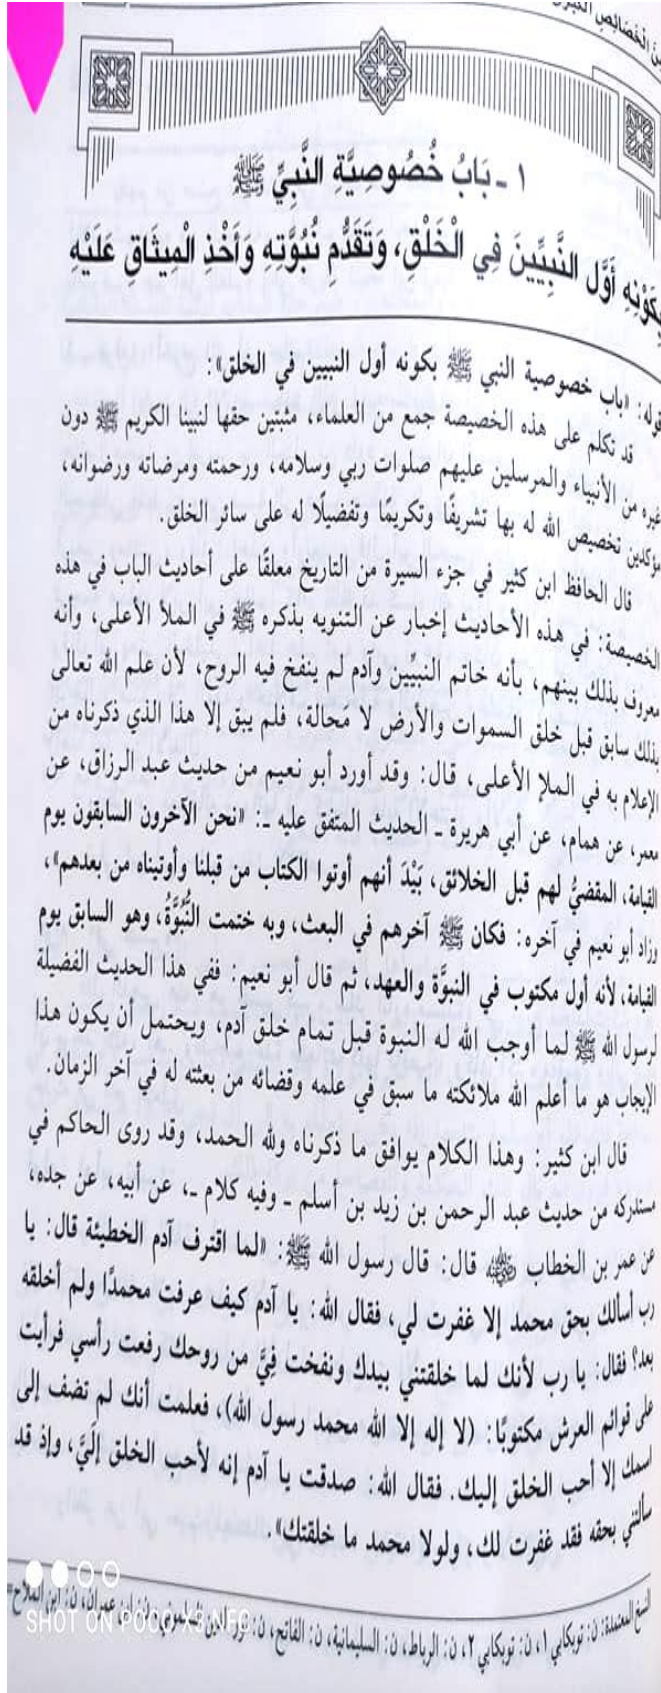 من الخصائص
١ ـ بَابُ خُصُوصِيَّةِ النَّبِيِّ ﷺ
بِكَوْنِهِ أَوَّلَ النَّبِيِّينَ فِي الْخَلْقِ، وَتَقَدُّمِ نُبُوَّتِهِ وَأَخْذِ الْمِيثَاقِ عَلَيْهِ
قوله: «باب خصوصية النبي ﷺ بكونه أول النبيين في الخلق»:
قد تكلم على هذه الخصيصة جمع من العلماء، مثبتين حقها لنبينا الكريم ﷺ دون
غيره من الأنبياء والمرسلين عليهم صلوات ربي وسلامه، ورحمته ومرضاته ورضوانه،
مؤكدين تخصيص الله له بها تشريفًا وتكريمًا وتفضيلًا له على سائر الخلق.
قال الحافظ ابن كثير في جزء السيرة من التاريخ معلقًا على أحاديث الباب في هذه
الخصيصة: في هذه الأحاديث إخبار عن التنويه بذكره ﷺ في الملأ الأعلى، وأنه
معروف بذلك بينهم، بأنه خاتم النبيّين وآدم لم ينفخ فيه الروح، لأن علم الله تعالى
بذلك سابق قبل خلق السموات والأرض لا محالة، فلم يبق إلا هذا الذي ذكرناه من
الإعلام به في الملإ الأعلى، قال: وقد أورد أبو نعيم من حديث عبد الرزاق، عن
معمر، عن همام، عن أبي هريرة ـ الحديث المتفق عليه ـ: «نحن الآخرون السابقون يوم
القيامة، المقضيُّ لهم قبل الخلائق، بَيْدَ أنهم أوتوا الكتاب من قبلنا وأوتيناه من بعدهم»،
وزاد أبو نعيم في آخره: فكان ﷺ آخرهم في البعث، وبه ختمت النُّبُوَّةُ، وهو السابق يوم
القيامة، لأنه أول مكتوب في النبوَّة والعهد، ثم قال أبو نعيم: ففي هذا الحديث الفضيلة
لرسول الله ﷺ لما أوجب الله له النبوة قبل تمام خلق آدم، ويحتمل أن يكون هذا
الإيجاب هو ما أعلم الله ملائكته ما سبق في علمه وقضائه من بعثته له في آخر الزمان.
قال ابن كثير: وهذا الكلام يوافق ما ذكرناه ولله الحمد، وقد روى الحاكم في
مستدركه من حديث عبد الرحمن بن زيد بن أسلم ـ وفيه كلام ـ، عن أبيه، عن جده،
عن عمر بن الخطاب ﷺ قال: قال رسول الله ﷺ: «لما اقترف آدم الخطيئة قال: يا
رب أسألك بحق محمد إلا غفرت لي، فقال الله: يا آدم كيف عرفت محمدًا ولم أخلقه
بعد؟ فقال: يا رب لأنك لما خلقتني بيدك ونفخت فِيَّ من روحك رفعت رأسي فرأيت
على قوائم العرش مكتوبًا: (لا إله إلا الله محمد رسول الله)، فعلمت أنك لم تضف إلى
اسمك إلا أحب الخلق إليك. فقال الله: صدقت يا آدم إنه لأحب الخلق إلَيَّ، وإذ قد
سألتني بحقه فقد غفرت لك، ولولا محمد ما خلقتك»
النسخ المعتمدة: ن: توبكابي ١، ن: توبكابي ٢، ن: الرباط، ن: السليمانية، ن: الفاتح، ن: ن: ابن عمران، ن: ابن الملاح=
SHOT ON POCO X3 NFC